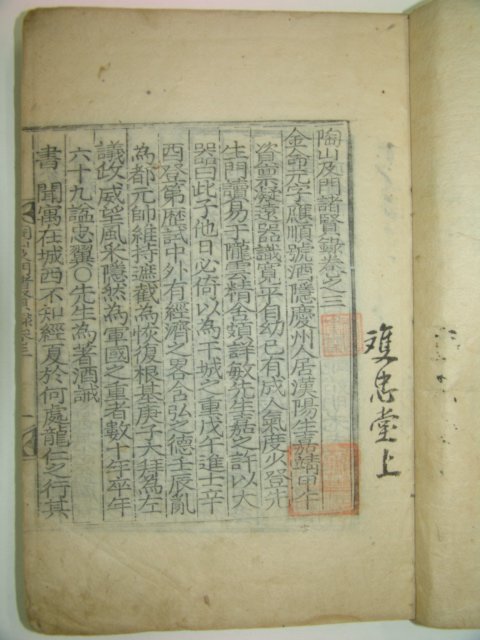 忠堂上
陶山及門諸賢錄卷之三
金命元字應順號酒隱慶州人居漢陽生嘉靖甲午
資稟凝遠器識寬平自幼已有成人氣度少登先
生門讀易于隴雲精舍頗詳敏先生嘉之許以大
器曰此子他日必倚以為干城之重戊午進士辛
酉登第歷試中外有經濟之畧含弘之德壬辰亂
為都元帥維持遮截為恢復根基庚子大拜為左
議政威望風采隱然為軍國之重者數十年卒年
六十九諡忠翼○先生為著酒誡
書 聞寓在城西不知經夏於何處龍仁之行其